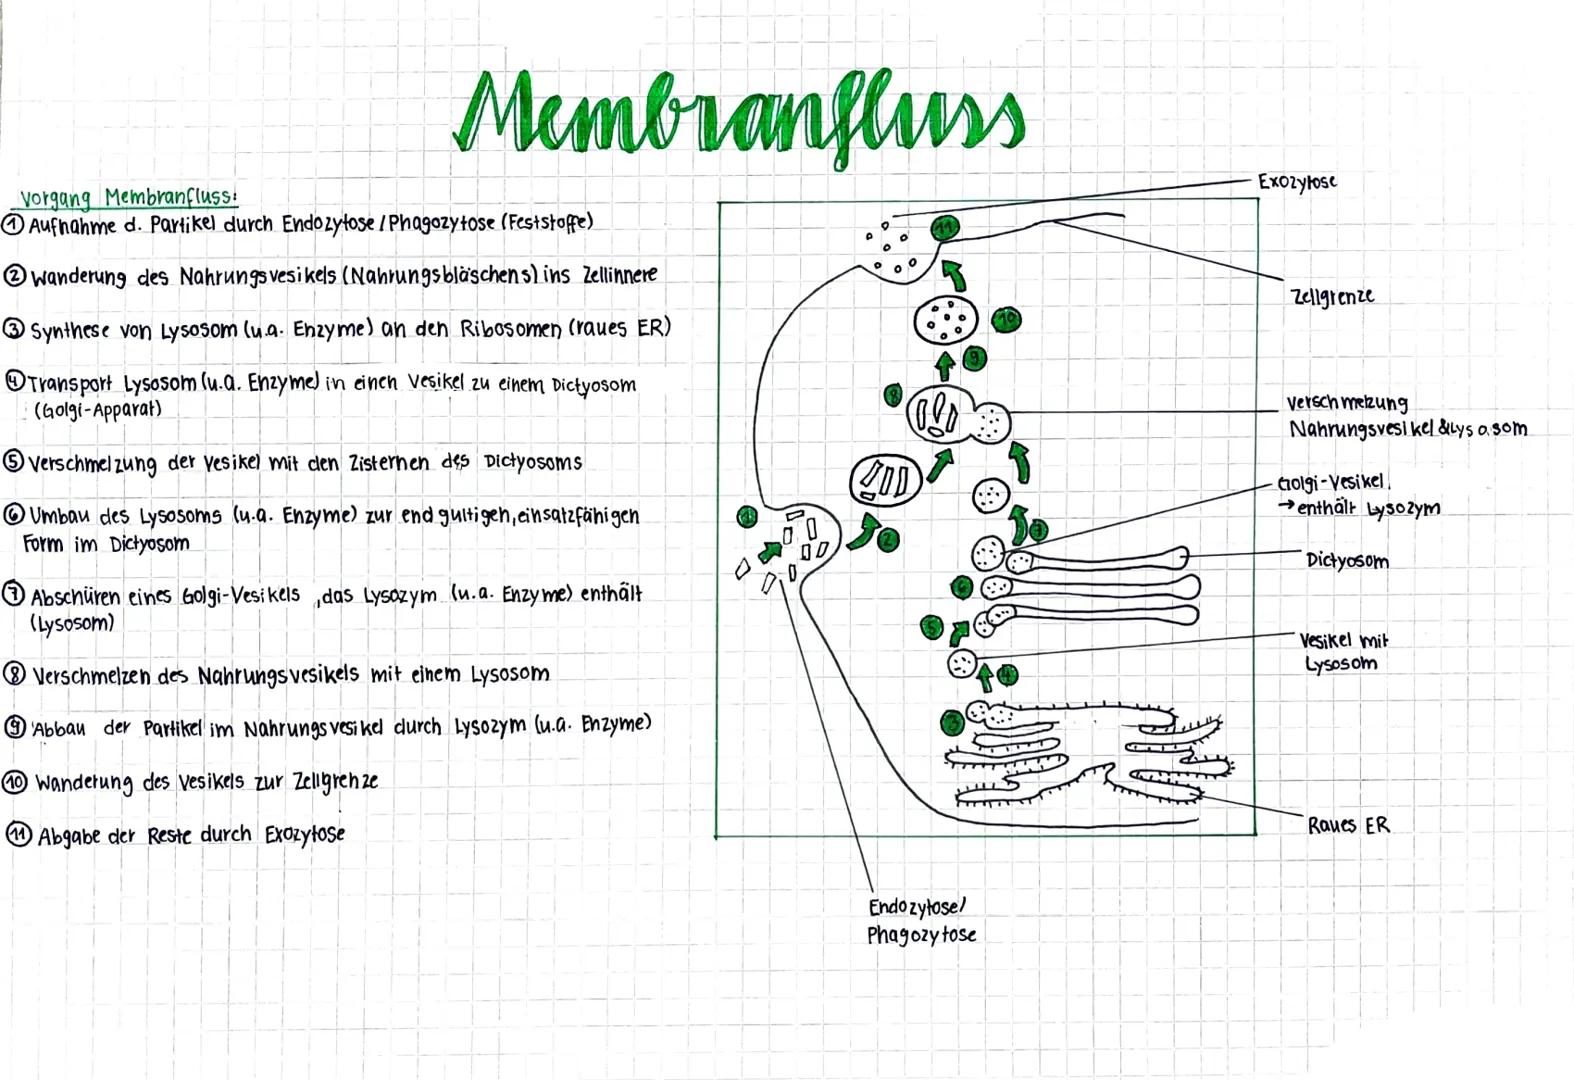 Membranfluss
Vorgang Membranfluss:
① Aufnahme d. Partikel durch Endozytose / Phagozytose (Feststoffe)
② Wanderung des Nahrungsvesikels (Nahrungsbläschens) ins Zellinnere
③ Synthese von Lysosom (u.a. Enzyme) an den Ribosomen (raues ER)
④ Transport Lysosom (u.a. Enzyme) in einen Vesikel zu einem Dictyosom
(Golgi-Apparat)
⑤ Verschmelzung der Vesikel mit den Zisternen des Dictyosoms
⑥ Umbau des Lysosoms (u.a. Enzyme) zur endgültigen, einsatzfähigen
Form im Dictyosom
⑦ Abschüren eines Golgi-Vesikels, das Lysozym (u.a. Enzyme) enthält
(Lysosom)
⑧ Verschmelzen des Nahrungsvesikels mit einem Lysosom
⑨ Abbau der Partikel im Nahrungsvesikel durch Lysozym (u.a. Enzyme)
⑩ Wanderung des Vesikels zur Zellgrenze
⑪ Abgabe der Reste durch Exozytose
Exozytose
11
Zellgrenze
10
9
8
Verschmelzung
Nahrungsvesikel & Lysosom
Golgi-Vesikel
→ enthält Lysozym
1
2
7
Dictyosom
6
5
Vesikel mit
Lysosom
4
3
Raues ER
Endozytose/
Phagozytose